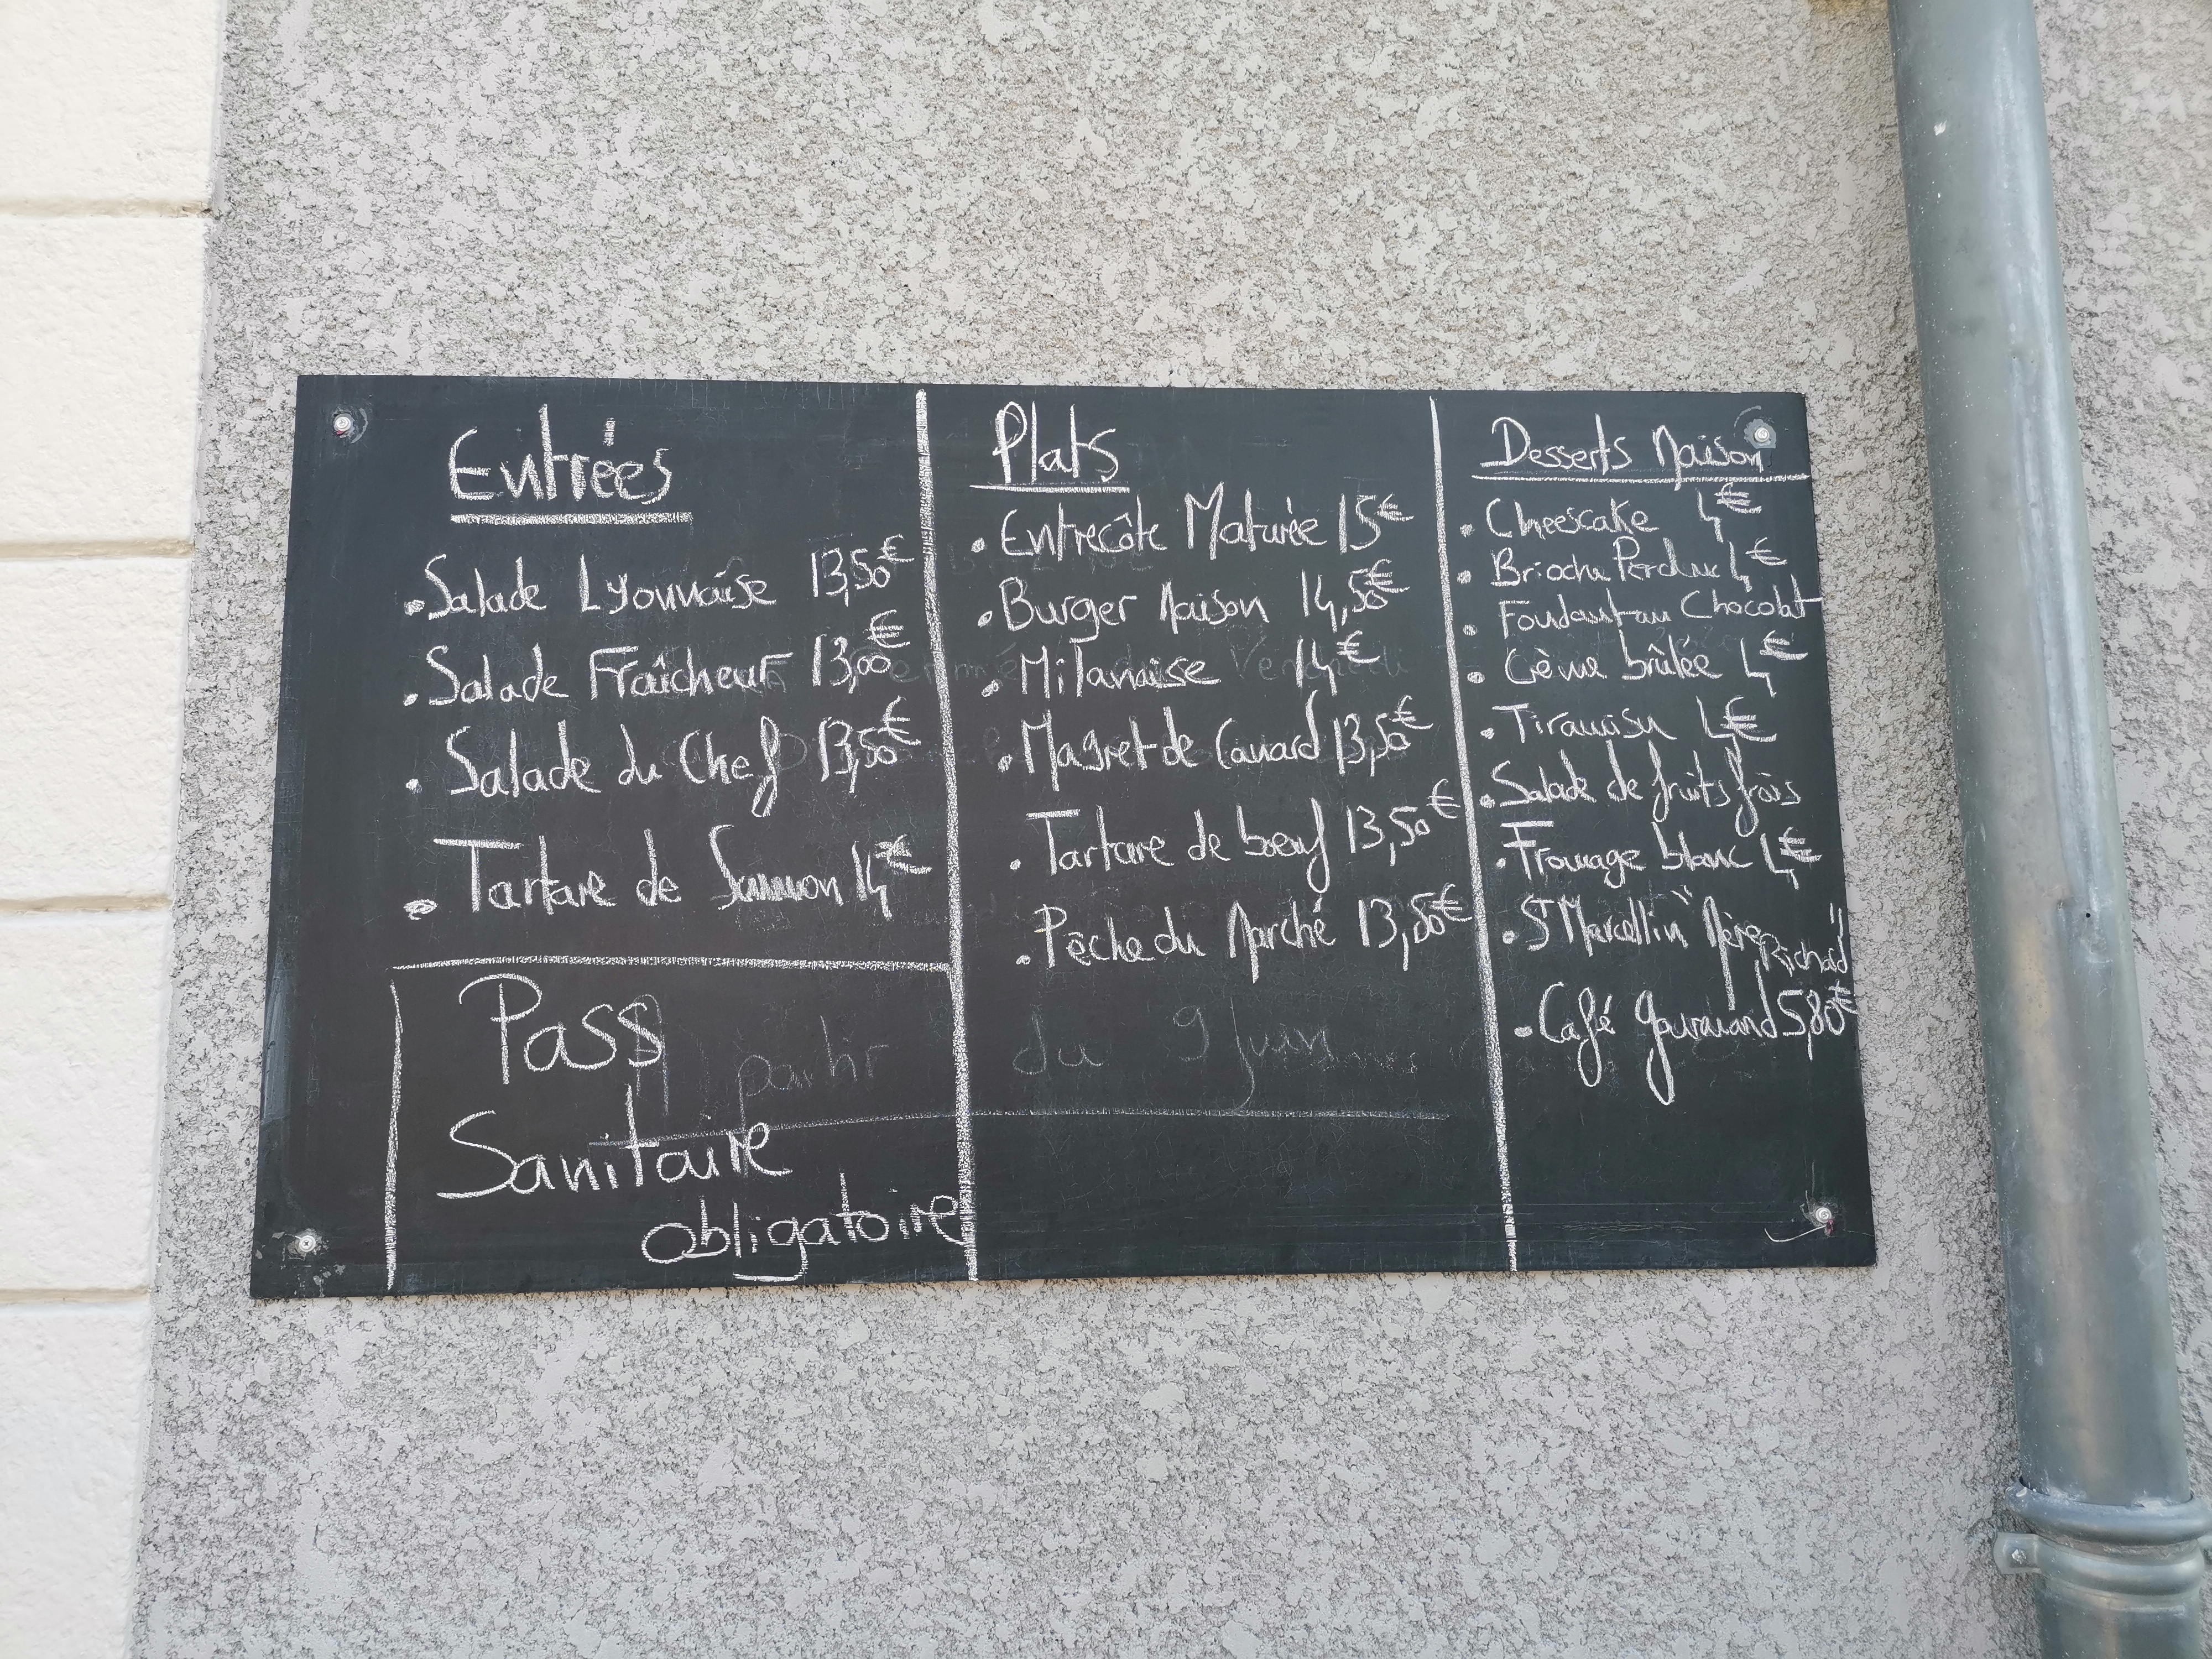 Entrées
. Salade Lyonnaise 13,50€
. Salade Fraîcheur 13,00€
. Salade du Chef 13,50€
. Tartare de Saumon 14€
Pass
Sanitaire
obligatoire
partir du 9 juin
Plats
. Entrecôte Maturée 15€
. Burger Maison 14,50€
. Milanaise 14€
. Magret de Canard 13,50€
. Tartare de boeuf 13,50€
. Pêche du Marché 13,50€
Desserts Maison
. Cheescake 4€
. Brioche Perdue 4€
. Fondant au Chocolat
. Crème brûlée 4€
. Tiramisu 4€
. Salade de fruits frais
. Fromage blanc 4€
. St Marcellin "Mère
Richard"
. Café gourmand 5,80€